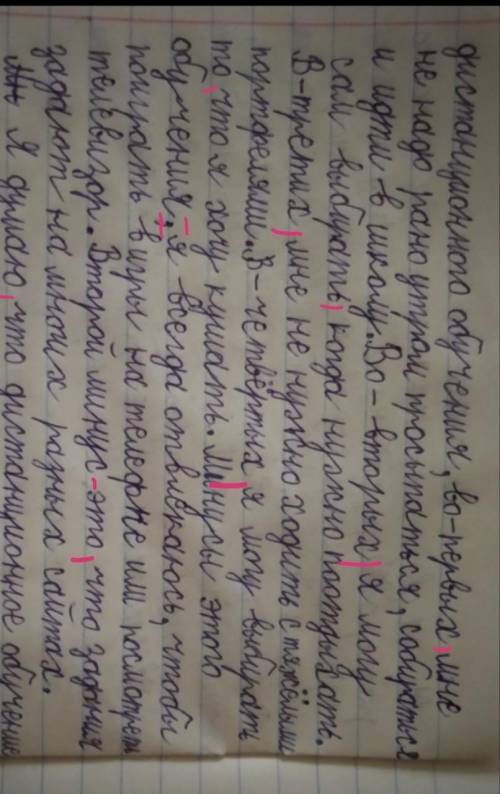 дистанционного обучения, во-первых, мне
не надо рано утром просыпаться, собираться
и идти в школу. Во-вторых, я могу
сам выбирать, когда нужно поотдыхать.
В-третих, мне не нужно ходить с тяжёлыми
портфелями. В-четвёртых я могу выбирать
то, что я хочу кушать. Минусы этого
обучения: - я всегда отвлекаюсь, чтобы
поиграть в игры на телефоне или посмотреть
телевизор. Второй минус - это, что задания
задают на многих разных сайтах.
Я думаю, что дистанционное обучение